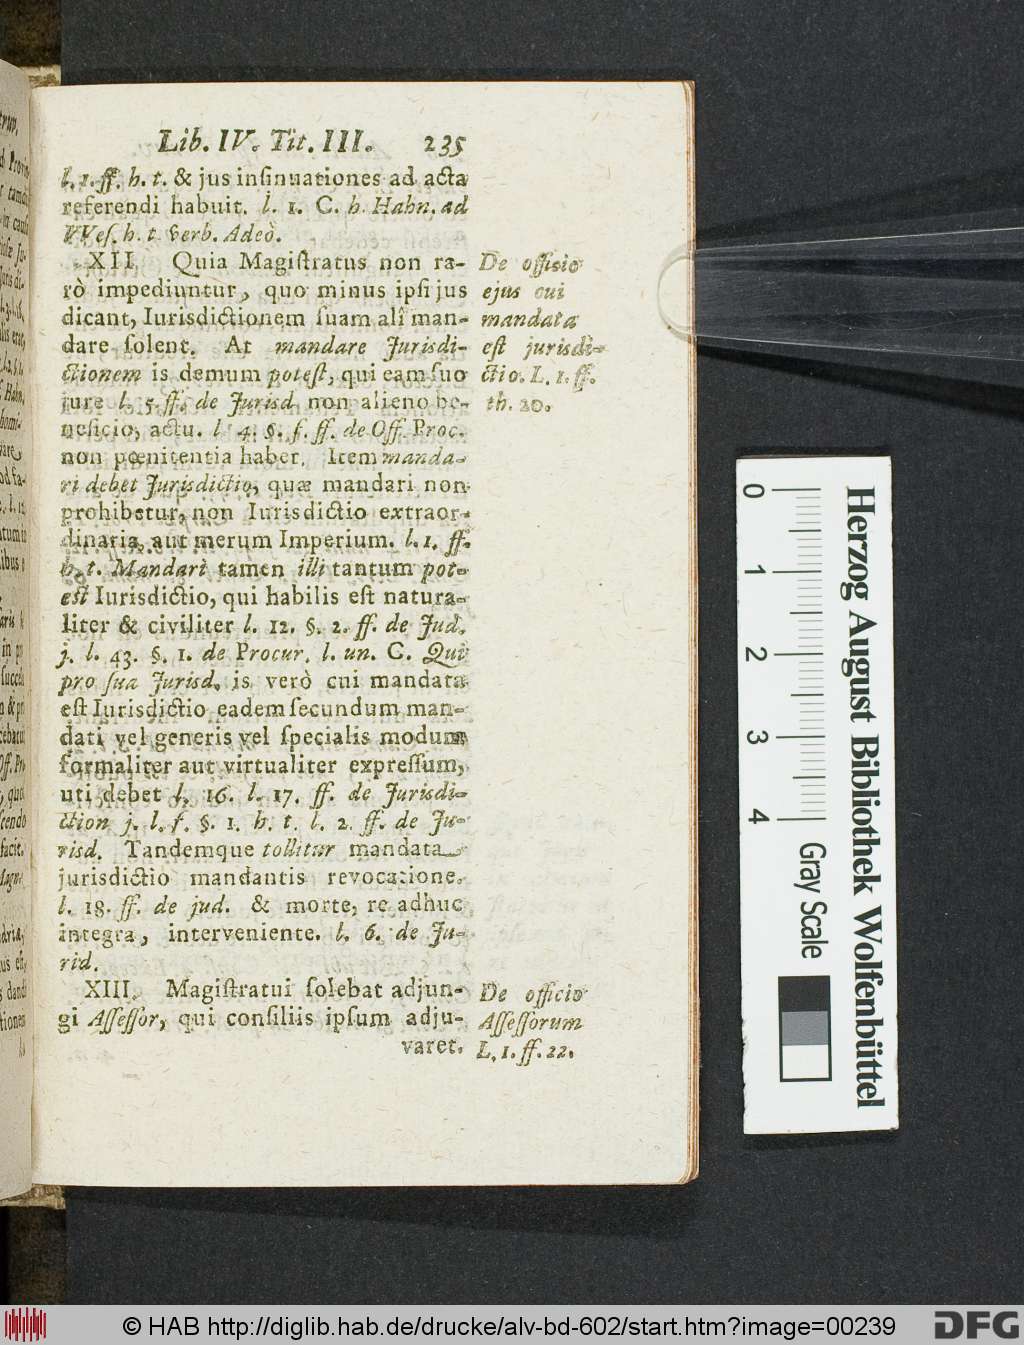 Lib. IV. Tit. III. 235
l. 1. ff. h. t. & jus insinuationes ad acta
referendi habuit. l. 1. C. h. Hahn. ad
VVes. h. t. verb. Adeò.
XII. Quia Magistratus non ra-
rò impediuntur, quo minus ipsi jus
dicant, Iurisdictionem suam alî man-
dare solent. At mandare Jurisdi-
ctionem is demum potest, qui eam suo
jure l. 5. ff. de Jurisd. non alieno be-
neficio, actu. l. 4. §. f. ff. de Off. Proc.
non pœnitentia habet. Item manda-
ri debet Jurisdictio, quæ mandari non
prohibetur, non Iurisdictio extraor-
dinaria, aut merum Imperium. l. 1. ff.
h. t. Mandari tamen illi tantum pot-
est Iurisdictio, qui habilis est natura-
liter & civiliter l. 12. §. 2. ff. de Jud.
j. l. 43. §. 1. de Procur. l. un. C. Qui
pro sua Jurisd. is verò cui mandata
est Iurisdictio eadem secundum man-
dati vel generis vel specialis modum
formaliter aut virtualiter expressum,
uti debet l. 16. l. 17. ff. de Jurisdi-
ction j. l. f. §. 1. h. t. l. 2. ff. de Ju-
risd. Tandemque tollitur mandata
jurisdictio mandantis revocatione.
l. 18. ff. de jud. & morte, re adhuc
integra, interveniente. l. 6. de Ju-
rid.
XIII. Magistratui solebat adjun-
gi Assessor, qui consiliis ipsum adju-
varet.
De officio
ejus cui
mandata
est jurisdi-
ctio. L. 1. ff.
th. 20.
De officio
Assessorum
L. 1. ff. 22.
0 1 2 3 4
Gray Scale
Herzog August Bibliothek Wolfenbüttel
© HAB http://diglib.hab.de/drucke/alv-bd-602/start.htm?image=00239
DFG